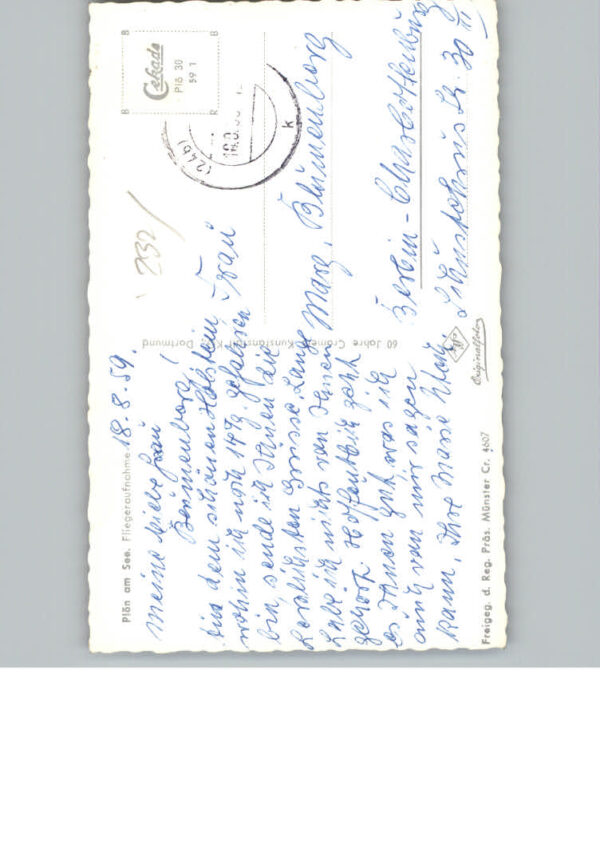 Plön am See. Fliegeraufnahme
18.8.59.
Meine liebe Frau
Blumenborg!
Aus dem schönen Holstein,
wohin ich noch 14 Tg. gefahren
bin sende ich Ihnen die
herzlichsten Grüsse. Lange
habe ich nichts von Ihnen
gehört. Hoffentlich geht
es Ihnen gut, was ich
auch von mir sagen
kann. Ihre Marie
Freigeg. d. Reg. Präs. Münster Cr. 4607
60 Jahre Cramers Kunstanstalt KG. Dortmund
Originalfoto
232
B B
Cekade
Plö 30
59 1
B R
(24b)
k
Frau
Marg. Blumenborg
Berlin-Charlottenburg
Str. 30 III